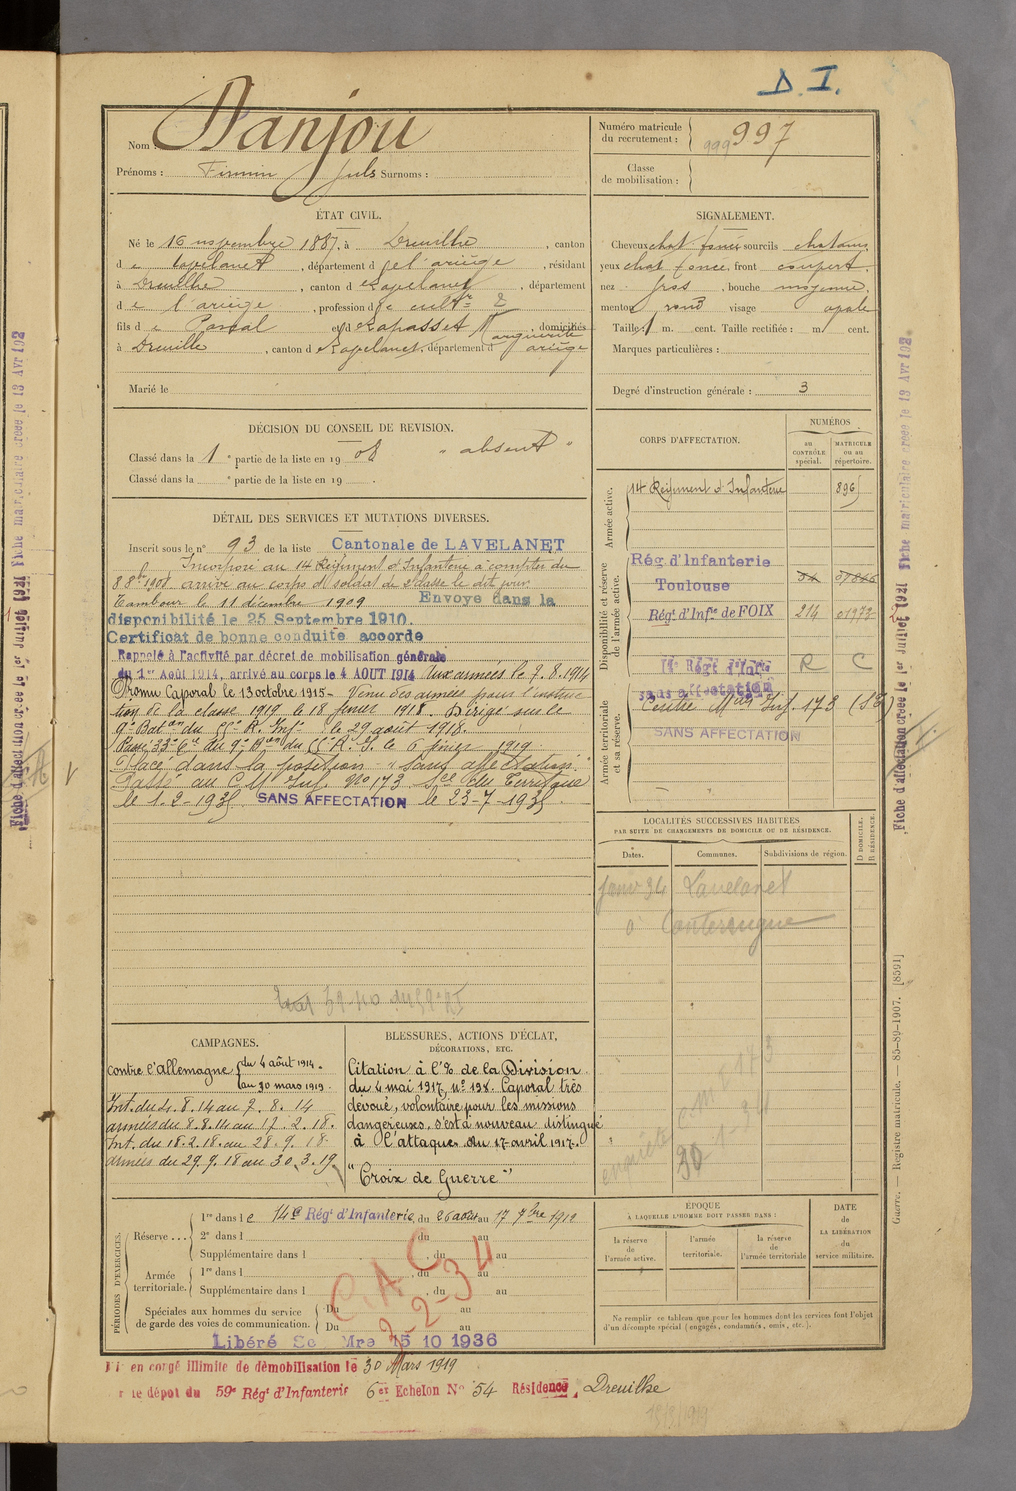 D. I.
Nom : Danjou
Prénoms : Firmin Juls Surnoms :
Numéro matricule
du recrutement : 999 997
Classe
de mobilisation :
ÉTAT CIVIL.
Né le 16 novembre 1887, à Dreuilhe, canton
de Lapelanet, département de l'ariège, résidant
à Dreuilhe, canton de Lapelanet, département
de l'ariège, profession de cultr 2
fils de Pascal et de Rapasset Marguerite, domiciliés
à Dreuille, canton de Lapelanet, département d ariège
Marié le
SIGNALEMENT.
Cheveux chat foncé sourcils chatains
yeux chat foncé, front coupert.
nez gros, bouche moyenne,
menton rond visage opale
Taille : 1 m. cent. Taille rectifiée : m. cent.
Marques particulières :
Degré d'instruction générale : 3
DÉCISION DU CONSEIL DE REVISION.
Classé dans la 1e partie de la liste en 1908 " absent "
Classé dans la e partie de la liste en 19 .
DÉTAIL DES SERVICES ET MUTATIONS DIVERSES.
Inscrit sous le n° 93 de la liste Cantonale de LAVELANET
Incorporé au 14 Régiment d'Infanterie à compter du
8 8bre 1908 arrivé au corps et soldat de 2e classe le dit jour
Tambour le 11 décembre 1909 Envoyé dans la
disponibilité le 25 Septembre 1910.
Certificat de bonne conduite accordé
Rappelé à l'activité par décret de mobilisation générale
du 1er Août 1914, arrivé au corps le 4 AOUT 1914 Aux armées le 7.8.1914
Promu Caporal le 13 octobre 1915 - Venu des armées pour l'instruc
tion de la classe 1919 le 18 févier 1918. Dirigé sur le
9e Baton du 55e R. Infie le 29 août 1918.
Passé 33e Cie du 9e Bon du 55e R. I. le 6 févier 1919.
Placé dans la position "sans affectation."
Passé au C M Inf. No 173 Sce du Territoire
le 1-2-1935. SANS AFFECTATION le 23-7-1935.
CORPS D'AFFECTATION.
NUMÉROS
au CONTRÔLE spécial.
MATRICULE ou au répertoire.
Armée active.
14 Régiment d'Infanterie 896
Disponibilité et réserve de l'armée active.
Rég. d'Infanterie
Toulouse
Régt d'Infie de FOIX 214 01973
R C
sans affectation
Armée territoriale et sa réserve.
Centre Mre Inf. 173 (SE)
SANS AFFECTATION
LOCALITÉS SUCCESSIVES HABITÉES
PAR SUITE DE CHANGEMENTS DE DOMICILE OU DE RÉSIDENCE.
Dates. Communes. Subdivisions de région. D DOMICILE. R RÉSIDENCE.
Janv 34 Lavelanet
à
CM I 173
enquête
30-1-34
CAMPAGNES.
contre l'Allemagne du 4 août 1914.
au 30 mars 1919.
Int. du 4.8.14 au 7.8.14
armées du 8.8.14 au 17.2.18.
Int. du 18.2.18 au 28.9.18
armées du 29.9.18 au 30.3.19
BLESSURES, ACTIONS D'ÉCLAT,
DÉCORATIONS, ETC.
Citation à l'% de la Division
du 4 mai 1917, n° 198. Caporal très
dévoué, volontaire pour les missions
dangereuses, s'est à nouveau distingué
à l'attaque du 17 avril 1917.
"Croix de Guerre"
PÉRIODES D'EXERCICES.
Réserve ... 1re dans le 14e Régt d'Infanterie, du 26 août au 17 7bre 1912
2e dans l , du au
Supplémentaire dans l , du au
Armée territoriale. 1re dans l , du au
Supplémentaire dans l , du au
Spéciales aux hommes du service
de garde des voies de communication. Du au
Du au
C.A.C
2-2-34
Libéré Sce Mre 15 10 1936
ÉPOQUE
À LAQUELLE L'HOMME DOIT PASSER DANS :
la réserve de l'armée active.
l'armée territoriale.
la réserve de l'armée territoriale
DATE
de
LA LIBÉRATION
du
service militaire.
Ne remplir ce tableau que pour les hommes dont les services font l'objet
d'un décompte spécial (engagés, condamnés, omis, etc.).
en congé illimité de démobilisation le 30 Mars 1919
le dépôt du 59e Régt d'Infanterie 6er Echelon No 54 Résidence, Dreuilhe
Fiche matriculaire créée le 13 Avr 192
Fiche d'affectation créée le 1er Juillet 1921
Guerre. — Registre matricule. — 85-89-1907. [8591]